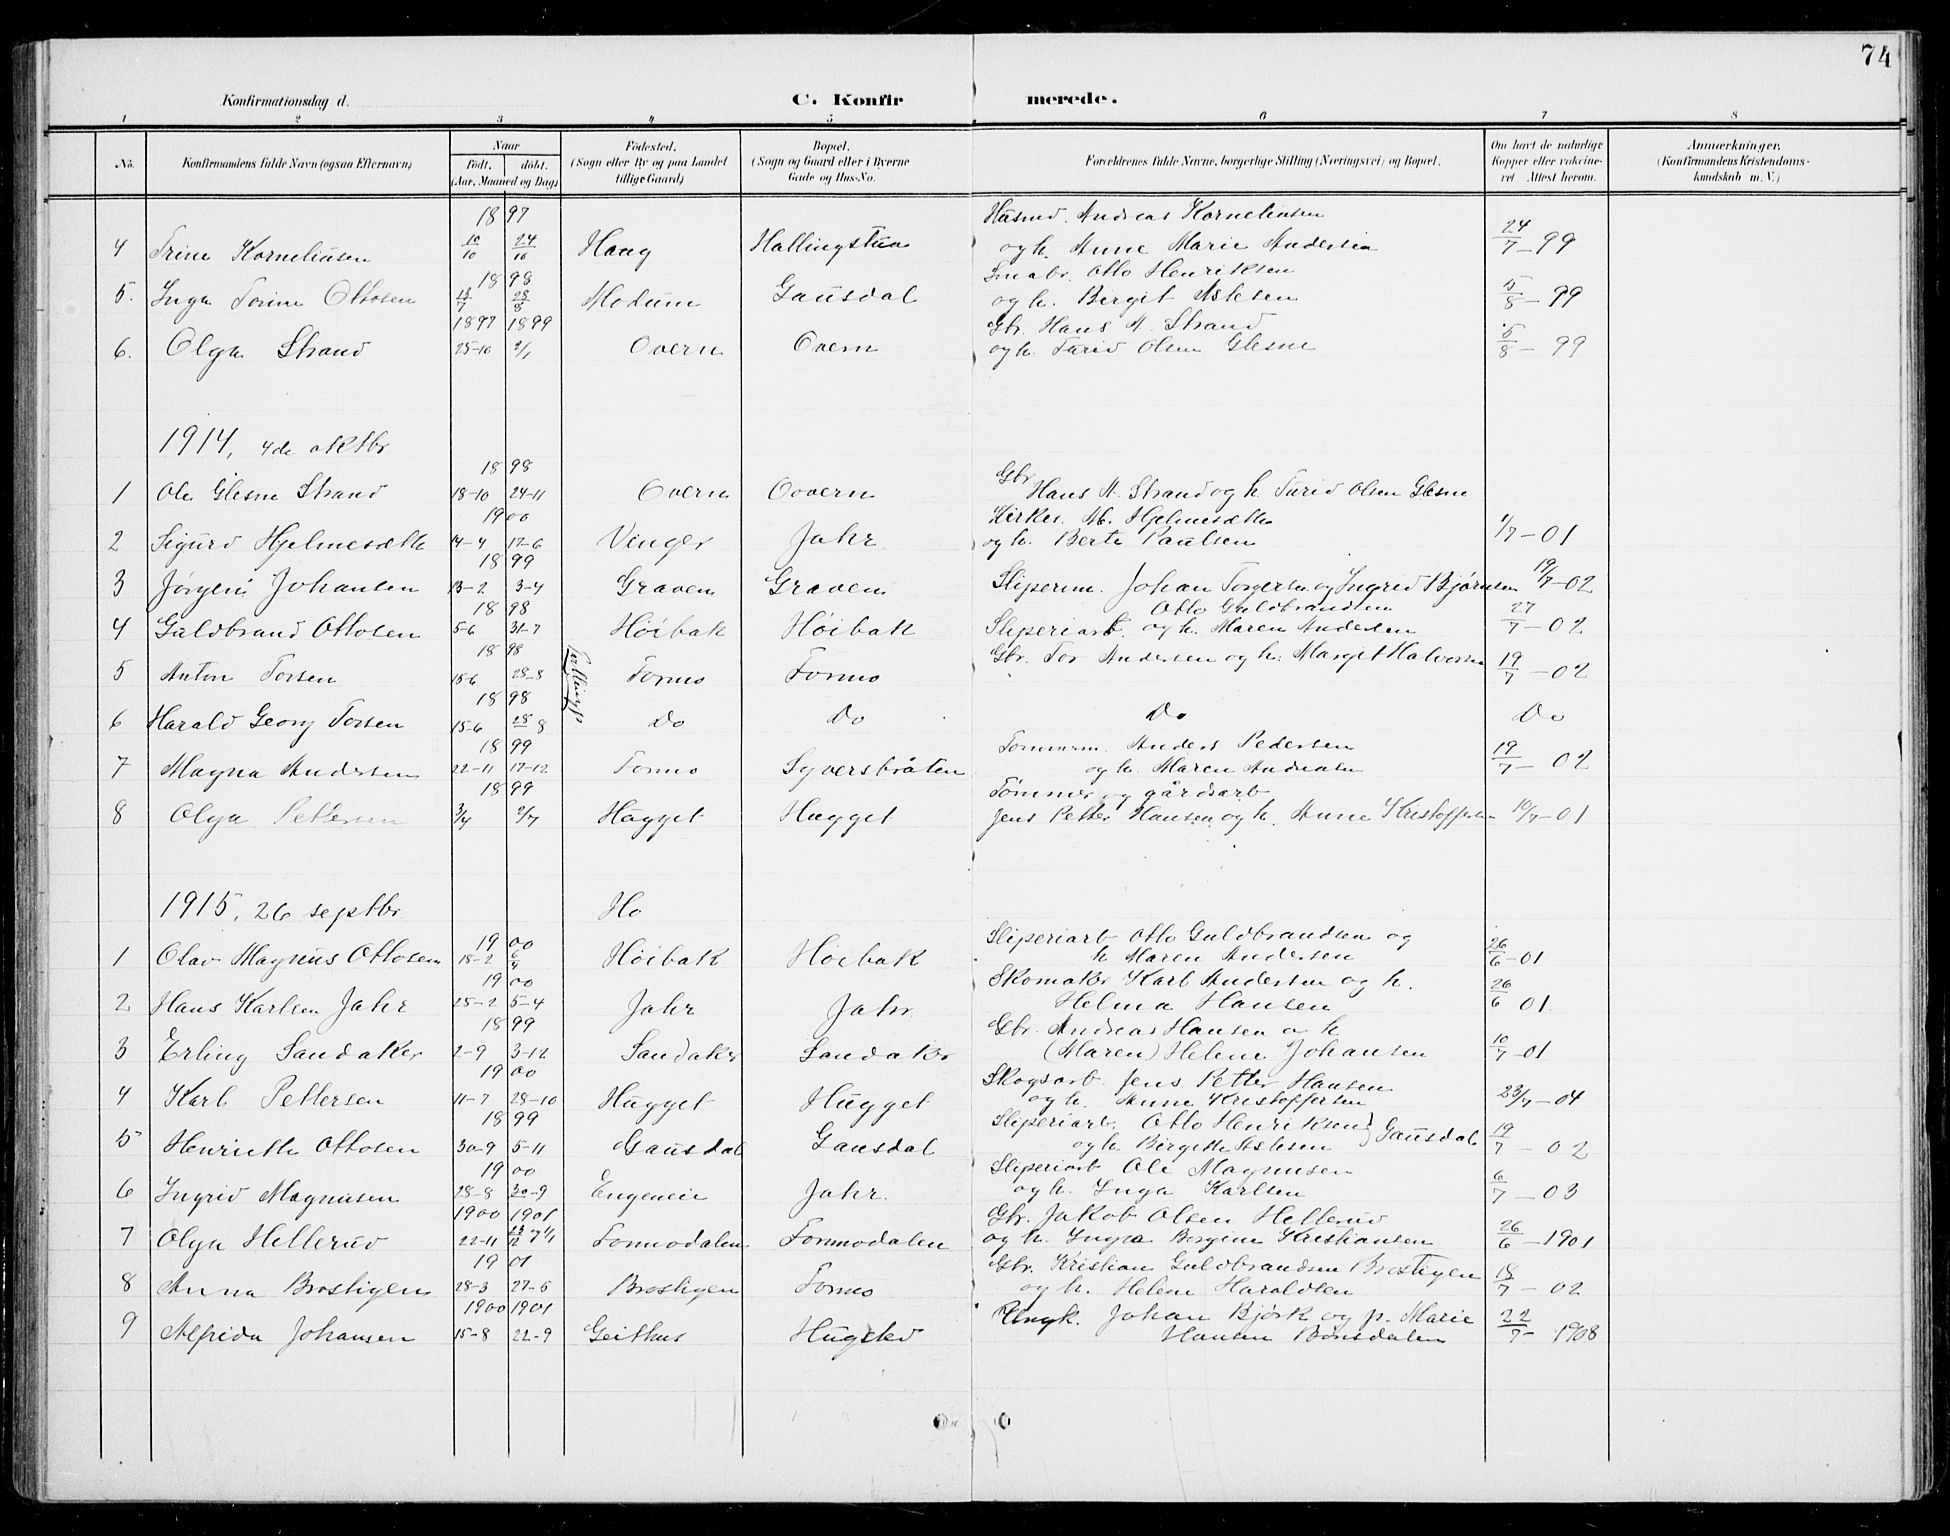 74
Konfirmationsdag d. C. Konfir merede.
1 2 3 4 5 6 7 8
No. Konfirmandens fulde Navn (ogsaa Efternavn) Naar Født. døbt. (Aar, Maaned og Dag) Fødested. (Sogn eller By og paa Landet tillige Gaard) Bopæl. (Sogn og Gaard eller i Byerne Gade og Hus-No. Forældrenes fulde Navne, borgerlige Stilling (Næringsvei) og Bopæl. Om havt de naturlige Kopper eller vakcineret. Attest herom. Anmærkninger. (Konfirmandens Kristendomskundskab m. V.)
1897 Husmd. Andreas Korneliusen
4 Trine Korneliusen 10/10 24/10 Haug Hallingstua og h. Anne Marie Andersen 24/7-99
1898 Smabr. Otto Henriksen
5. Inga Torine Ottosen 13/7 28/8 Modum Gausdal og h. Birgit Aslesen 5/8-99
1897 1899 Gbr. Hans A. Strand
6. Olga Strand 25-10 2/1 Overn Overn og h. Turid Olsen Glesne 5/8-99
1914, 4de oktbr
1898 Gbr.
1 Ole Glesne Strand 18-10 24-11 Overn Oovern Hans A. Strand og h. Turid Olsen Glesne
1900 Kirkes. M. Hjelmesæth
2 Sigurd Hjelmesæth 14-4 17-6 Vinger Jahr og h. Berte Paulsen 1/7-01
1899
3 Jørgen Johansen 13-2 3-4 Graven Graven Sliperim. Johan Torgersen og Ingrid Bjørnsen 19/7-02
1898 Otto Guldbrandsen
4 Guldbrand Ottosen 5-6 31-7 Höibak Höibak Sliperiarb. og h. Maren Andersen 27/7-02
1898 Gbr. Tor Andersen og h. Margit Halvorsen
5 Anton Torsen 15-6 28-8 Tvillingp. Formo Formo 19/7-02
1898
6 Harald Georg Torsen 15-6 28/8 Do Do Do Do
1899 Tømmerm. Anders Pedersen
7 Magna Andersen 22-11 17-12 Formo Syversbråten og h. Maren Andersen 19/7-02
1899 Tømmer og gårdsarb
8 Olga Pettersen 3/4 2/7 Hugget Hugget Jens Petter Hansen og h. Anne Kristoffersen 10/7-01
1915, 26 septbr. Ho
1900 Sliperiarb Otto Guldbrandsen og
1 Olav Magnus Ottosen 18-2 6/4 Höibak Höibak h Maren Andersen 26/6-01
1900 Skomaker Karl Andersen og h.
2 Hans Karlsen Jahr 25-2 5-4 Jahr Jahr Helma Hansen 26/6 01
1899 Gbr. Andreas Hansen og h
3 Erling Sandaker 2-9 3-12 Sandaker Sandaker (Maren) Helene Johansen 10/7-01
1900 Skogsarb. Jens Petter Hansen
4 Karl Pettersen 11-7 28-10 Hugget Hugget og h. Anne Kristoffersen 23/7-04
1899 Sliperiarb. Otto Henriksen } Gausdal
5 Henriette Ottosen 30-9 5-11 Gausdal Gausdal og h Birgitte Aslesen 19/7-02
1900 Sliperiarb Ole Magnusen
6 Ingrid Magnusen 28-8 30-9 Engeneie Jahr. og h. Inga Karlsen 6/7-03
1900 1901 Gbr. Jakob Olsen Hellerud
7 Olga Hellerud 22-11 Formodalen Formodalen og h. Inga Bergine Kristiansen 26/6-1901
1901 Gbr. Kristian Guldbrandsen Brostigen
8 Anna Brostigen 28-3 27-5 Brostigen Formo og h. Helene Haraldsen 18/7-02
1900 1901 Ungk. Johan Bjørk og p. Marie
9 Alfrida Johansen 15-8 22-9 Geithus Hugsted Hansen Bønsdalen 22/7-1908